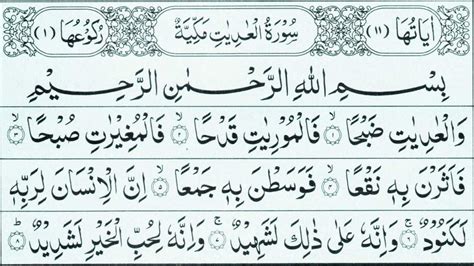 اٰيَاتُهَا (١١) سُوْرَةُ الْعٰدِيٰتِ مَكِّيَّةٌ رُكُوْعُهَا (١)
بِسْمِ اللّٰهِ الرَّحْمٰنِ الرَّحِيْمِ
وَالْعٰدِيٰتِ ضَبْحًا ۙ﴿۱﴾ فَالْمُوْرِيٰتِ قَدْحًا ۙ﴿۲﴾ فَالْمُغِيْرٰتِ صُبْحًا ۙ﴿۳﴾
فَاَثَرْنَ بِهٖ نَقْعًا ۙ﴿۴﴾ فَوَسَطْنَ بِهٖ جَمْعًا ۙ﴿۵﴾ اِنَّ الْاِنْسَانَ لِرَبِّهٖ
لَكَنُوْدٌ ۚ﴿۶﴾ وَاِنَّهٗ عَلٰى ذٰلِكَ لَشَهِيْدٌ ۚ﴿۷﴾ وَاِنَّهٗ لِحُبِّ الْخَيْرِ لَشَدِيْدٌ ؕ﴿۸﴾